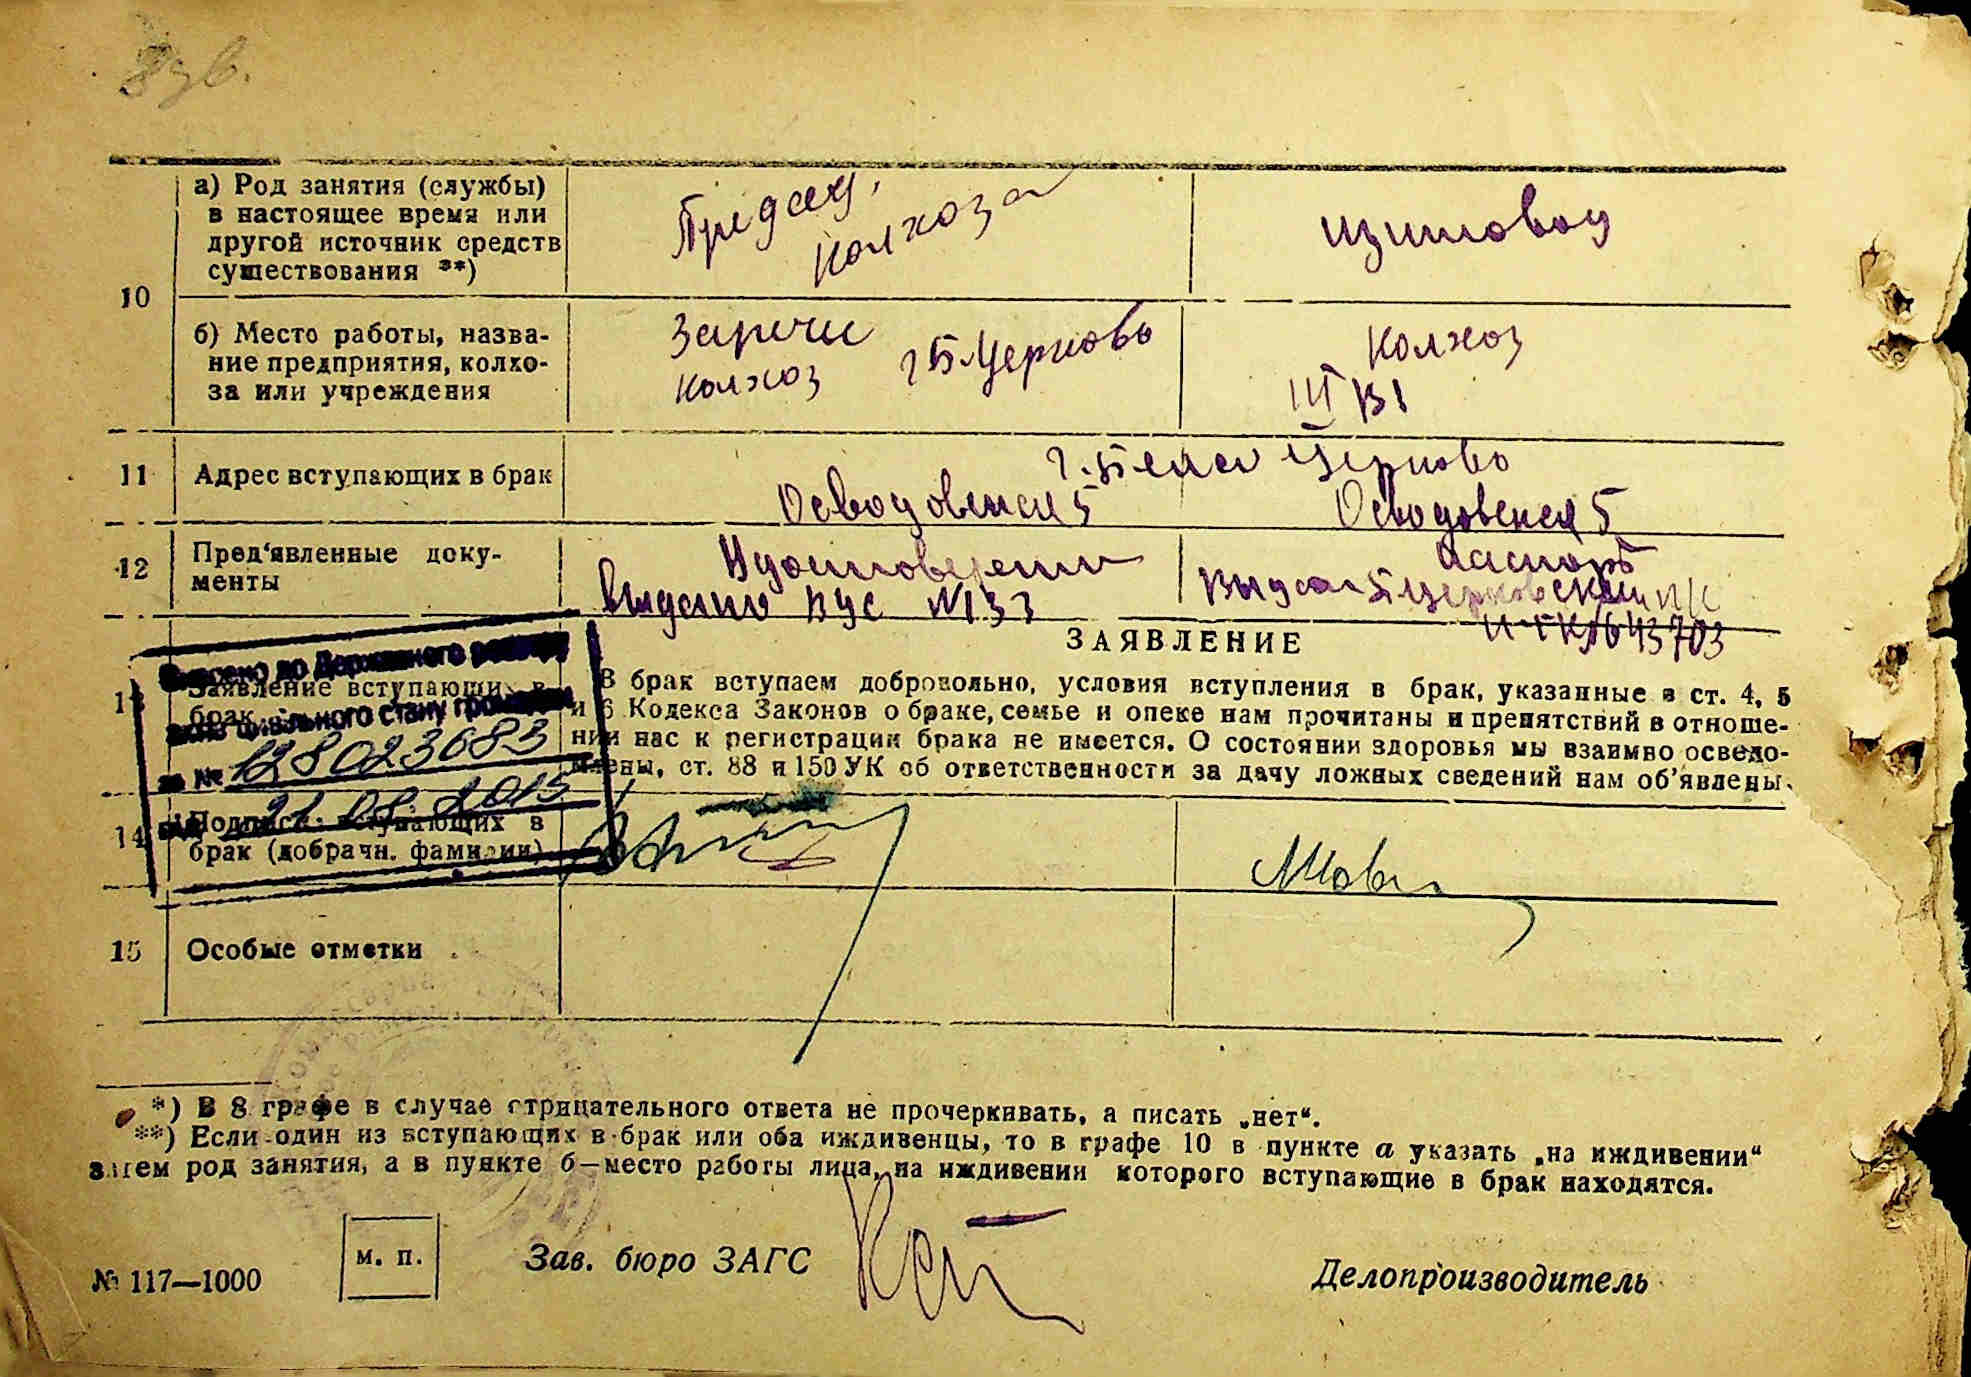 а) Род занятия (службы)
в настоящее время или
другой источник средств
существования **)
Председ.
колхоза
10
б) Место работы, назва-
ние предприятия, колхо-
за или учреждения
колхоз
г Б-Церковь
Колхоз
11
Адрес вступающих в брак
г. Белая Церковь
12
Пред‘явленные доку-
менты
Удостоверение
выдано ВУС №133
Паспорт
Выдан Б Церковским
643703
ЗАЯВЛЕНИЕ
Внесено до Державного реєстру
актів цивільного стану громадян
за № 128023683
21.08.2015
13
Заявление вступающих в
брак
В брак вступаем добровольно, условия вступления в брак, указанные в ст. 4, 5
и 6 Кодекса Законов о браке, семье и опеке нам прочитаны и препятствий в отноше-
нии нас к регистрации брака не имеется. О состоянии здоровья мы взаимно осведо-
млены, ст. 88 и 150 УК об ответственности за дачу ложных сведений нам об‘явлены.
14
Подписи вступающих в
брак (добрачн. фамилии)
15
Особые отметки
*) В 8 графе в случае отрицательного ответа не прочеркивать, а писать „нет“.
**) Если один из вступающих в брак или оба иждивенцы, то в графе 10 в пункте а указать „на иждивении“
затем род занятия, а в пункте б—место работы лица, на иждивении которого вступающие в брак находятся.
м. п.
Зав. бюро ЗАГС
Делопроизводитель
№ 117—1000